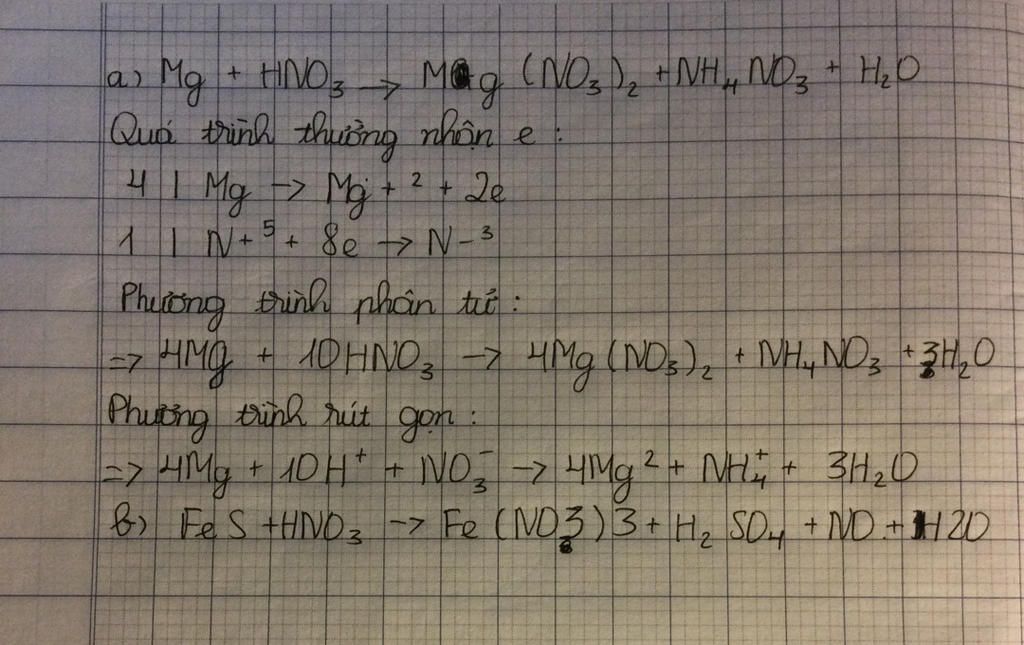 a) Mg + HNO₃ → Mg (NO₃)₂ + NH₄NO₃ + H₂O
Quá trình thưởng nhận e :
4 | Mg → Mg + ² + 2e
1 | N+⁵ + 8e → N-³
Phương trình phân tử :
=> 4Mg + 10HNO₃ → 4Mg(NO₃)₂ + NH₄NO₃ + 3H₂O
Phương trình rút gọn :
=> 4Mg + 10H⁺ + NO₃⁻ → 4Mg² + NH₄⁺ + 3H₂O
b) FeS + HNO₃ → Fe (NO3)3 + H₂SO₄ + NO + H2O